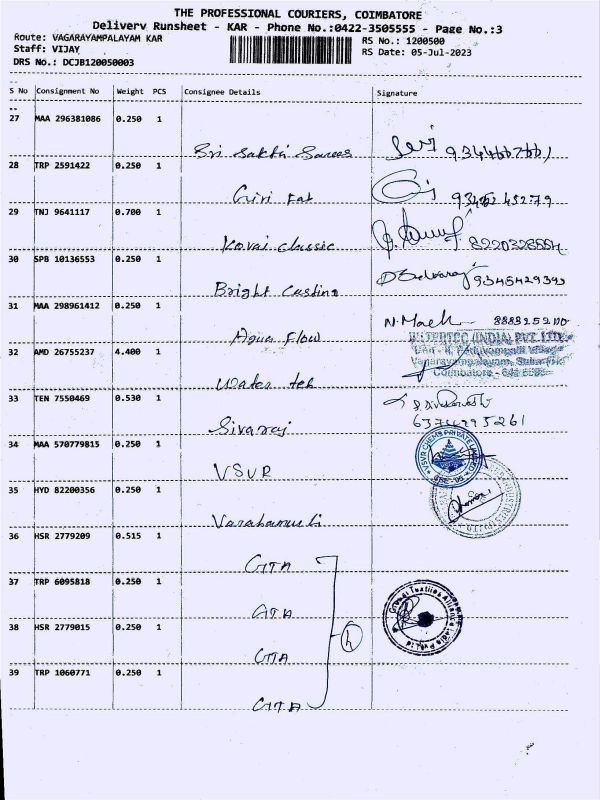 THE PROFESSIONAL COURIERS, COIMBATORE
Delivery Runsheet - KAR - Phone No.:0422-3505555 - Page No.:3
Route: VAGARAYAMPALAYAM KAR
RS No.: 1200500
Staff: VIJAY
RS Date: 05-Jul-2023
DRS No.: DCJB120050003
S No Consignment No Weight PCS Consignee Details Signature
27 MAA 296381086 0.250 1
Sri Sakthi Sarees
28 TRP 2591422 0.250 1
Giri Fab
29 TNJ 9641117 0.700 1
Kovai classic 8220328554
30 SPB 10136553 0.250 1
Bright Casting
31 MAA 298961412 0.250 1
Aqua Flow
32 AMD 26755237 4.400 1
WATERTEC (INDIA) PVT. LTD.
Coimbatore
Water tek
33 TEN 7550469 0.530 1
Sivaraj
34 MAA 570779815 0.250 1
VSVR
VSVR CHEMS PRIVATE LIMITED
35 HYD 82200356 0.250 1
36 HSR 2779209 0.515 1
GTA
37 TRP 6095818 0.250 1
GTA
38 HSR 2779015 0.250 1
GTA
39 TRP 1060771 0.250 1
GTA